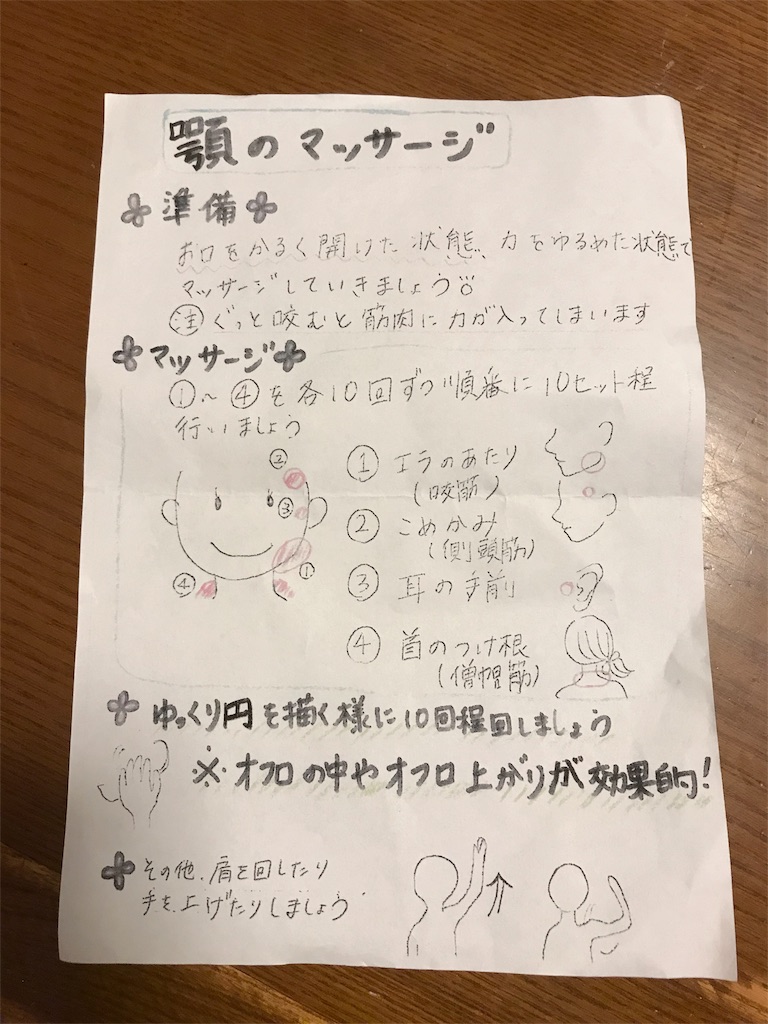 顎のマッサージ
準備
お口をかるく開けた状態、力をゆるめた状態で
マッサージしていきましょう
注 ぐっと咬むと筋肉に力が入ってしまいます
マッサージ
①～④を各10回ずつ順番に10セット程
行いましょう
① エラのあたり
(咬筋)
② こめかみ
(側頭筋)
③ 耳の手前
④ 首のつけ根
(僧帽筋)
②
③
①
④
ゆっくり円を描く様に10回程回しましょう
※オフロの中やオフロ上がりが効果的!
その他、肩を回したり
手を上げたりしましょう